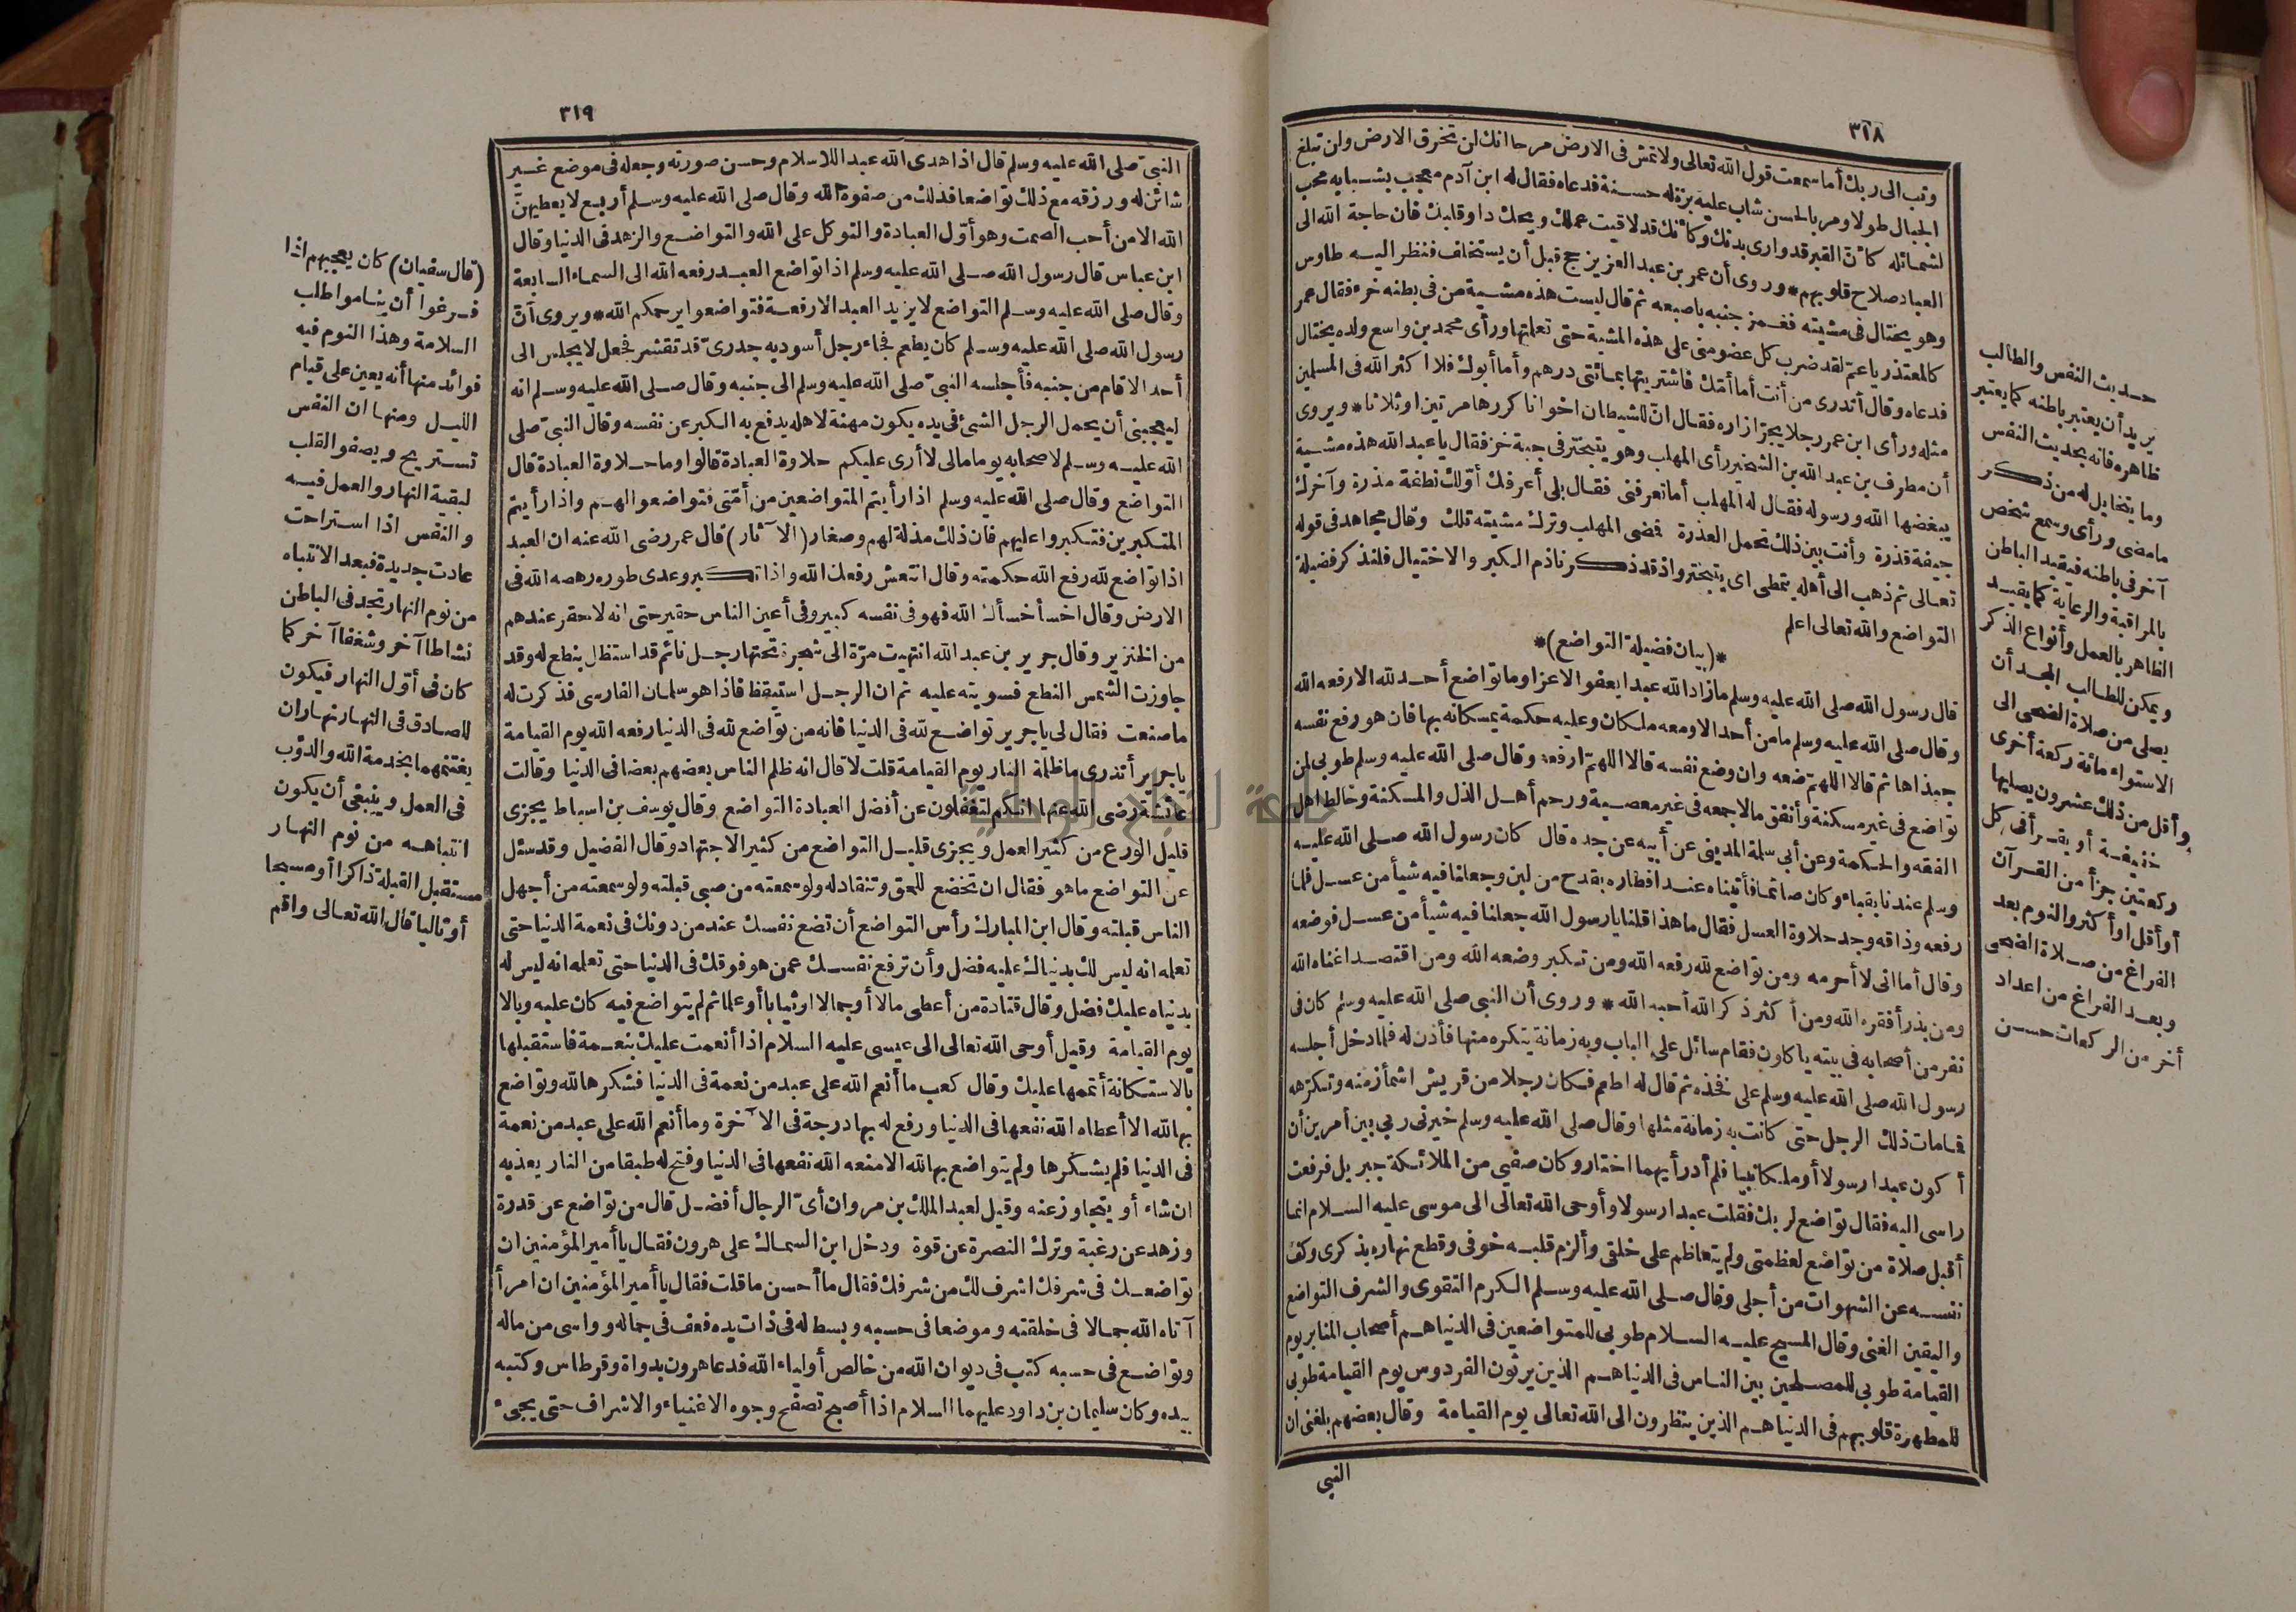 ٣١٨
وتب الى ربك أما سمعت قول الله تعالى ولا تمش فى الارض مرحا انك لن تخرق الارض ولن تبلغ
الجبال طولا ومر بالحسن شاب عليه بزة له حسنة فدعاه فقال له ابن آدم معجب بشبابه محب
لشمائله كأنّ القبر قد وارى بدنك وكأنك قد لاقيت عملك ويحك داو قلبك فان حاجة الله الى
العباد صلاح قلوبهم * وروى أن عمر بن عبد العزيز حج قبل أن يستخلف فنظر اليه طاوس
وهو يختال فى مشيته فغمز جنبه باصبعه ثم قال ليست هذه مشية من فى بطنه خرء فقال عمر
كالمعتذر يا عم لقد ضرب كل عضو منى على هذه المشية حتى تعلمتها ورأى محمد بن واسع ولده يختال
فدعاه وقال أتدرى من أنت أما أمّك فاشتريتها بمائتى درهم وأما أبوك فلا اكثر الله فى المسلمين
مثله ورأى ابن عمر رجلا يجرّ ازاره فقال انّ للشيطان اخوانا كررها مرتين او ثلاثا * ويروى
أن مطرف بن عبد الله بن الشخير رأى المهلب وهو يتبختر فى جبة خز فقال يا عبد الله هذه مشية
يبغضها الله ورسوله فقال له المهلب أما تعرفنى فقال بلى أعرفك أوّلك نطفة مذرة وآخرك
جيفة قذرة وأنت بين ذلك تحمل العذرة فمضى المهلب وترك مشيته تلك وقال مجاهد فى قوله
تعالى ثم ذهب الى أهله يتمطى اى يتبختر واذ قد ذكرنا ذم الكبر والاختيال فلنذكر فضيلة
التواضع والله تعالى اعلم
*(بيان فضيلة التواضع)*
قال رسول الله صلى الله عليه وسلم ما زاد الله عبدا بعفو الا عزا وما تواضع أحد لله الا رفعه الله
وقال صلى الله عليه وسلم ما من أحد الا ومعه ملكان وعليه حكمة يمسكانه بها فان هو رفع نفسه
جبذاها ثم قالا اللهمّ ضعه وان وضع نفسه قالا اللهمّ ارفعه وقال صلى الله عليه وسلم طوبى لمن
تواضع فى غير مسكنة وأنفق مالا جمعه فى غير معصية ورحم أهل الذل والمسكنة وخالط اهل
الفقه والحكمة وعن أبى سلمة المدينى عن أبيه عن جده قال كان رسول الله صلى الله عليه
وسلم عندنا بقباء وكان صائما فأتيناه عند افطاره بقدح من لبن وجعلنا فيه شيأ من عسل فلما
رفعه وذاقه وجد حلاوة العسل فقال ما هذا قلنا يا رسول الله جعلنا فيه شيأ من عسل فوضعه
وقال أما انى لا أحرمه ومن تواضع لله رفعه الله ومن تكبر وضعه الله ومن اقتصد اغناه الله
ومن بذر أفقره الله ومن أكثر ذكر الله أحبه الله * وروى أن النبى صلى الله عليه وسلم كان فى
نفر من أصحابه فى بيته يأكلون فقام سائل على الباب وبه زمانة يتكره منها فأذن له فلما دخل أجلسه
رسول الله صلى الله عليه وسلم على فخذه ثم قال له اطعم فكان رجلا من قريش اشمأز منه وتكرّهه
فما مات ذلك الرجل حتى كانت به زمانة مثلها وقال صلى الله عليه وسلم خيرنى ربى بين أمرين أن
أكون عبدا رسولا أو ملكا نبيا فلم أدر أيهما اختار وكان صفيي من الملائكة جبريل فرفعت
راسى اليه فقال تواضع لربك فقلت عبدا رسولا وأوحى الله تعالى الى موسى عليه السلام انما
أقبل صلاة من تواضع لعظمتى ولم يتعاظم على خلقى وألزم قلبه خوفى وقطع نهاره بذكرى وكف
نفسه عن الشهوات من أجلى وقال صلى الله عليه وسلم الكرم التقوى والشرف التواضع
واليقين الغنى وقال المسيح عليه السلام طوبى للمتواضعين فى الدنيا هم أصحاب المنابر يوم
القيامة طوبى للمصلحين بين الناس فى الدنيا هم الذين يرثون الفردوس يوم القيامة طوبى
للمطهرة قلوبهم فى الدنيا هم الذين ينظرون الى الله تعالى يوم القيامة وقال بعضهم بلغنى ان
النبى
حديث النفس والطالب
يريد أن يعتبر باطنه كما يعتبر
ظاهره فانه بحديث النفس
وما يتخايل له من ذكر
ما مضى ورأى وسمع شخص
آخر فى باطنه فيقيد الباطن
بالمراقبة والرعاية كما يقيد
الظاهر بالعمل وأنواع الذكر
ويمكن للطالب المجد أن
يصلى من صلاة الضحى الى
الاستواء مائة ركعة أخرى
وأقل من ذلك عشرون يصليها
خفيفة أو يقرأ فى كل
ركعتين جزأ من القرآن
أو أقل او أكثر والنوم بعد
الفراغ من صلاة الضحى
وبعد الفراغ من اعداد
أخر من الركعات حسن
٣١٩
النبىّ صلى الله عليه وسلم قال اذا هدى الله عبد اللاسلام وحسن صورته وجعله فى موضع غير
شائن له ورزقه مع ذلك تواضعا فذلك من صفوة الله وقال صلى الله عليه وسلم أربع لا يعطيهنّ
الله الا من أحب الصمت وهو أوّل العبادة والتوكل على الله والتواضع والزهد فى الدنيا وقال
ابن عباس قال رسول الله صلى الله عليه وسلم اذا تواضع العبد رفعه الله الى السماء السابعة
وقال صلى الله عليه وسلم التواضع لا يزيد العبد الا رفعة فتواضعوا يرحمكم الله * ويروى أنّ
رسول الله صلى الله عليه وسلم كان يطعم فجاء رجل أسود به جدرىّ قد تقشر فجعل لا يجلس الى
أحد الا قام من جنبه فأجلسه النبىّ صلى الله عليه وسلم الى جنبه وقال صلى الله عليه وسلم انه
ليعجبنى أن يحمل الرجل الشئ فى يده يكون مهنة لاهله يدفع به الكبر عن نفسه وقال النبىّ صلى
الله عليه وسلم لاصحابه يوما مالى لا أرى عليكم حلاوة العبادة قالوا وما حلاوة العبادة قال
التواضع وقال صلى الله عليه وسلم اذا رأيتم المتواضعين من أمّتى فتواضعوا لهم واذا رأيتم
المتكبرين فتكبروا عليهم فان ذلك مذلة لهم وصغار (الآثار) قال عمر رضى الله عنه ان العبد
اذا تواضع لله رفع الله حكمته وقال انتعش رفعك الله واذا تكبر وعدى طوره رهصه الله فى
الارض وقال اخسأ خسأك الله فهو فى نفسه كبير وفى أعين الناس حقير حتى انه لاحقر عندهم
من الخنزير وقال جرير بن عبد الله انتهيت مرّة الى شجرة تحتها رجل نائم قد استظل بنطع له وقد
جاوزت الشمس النطع فسويته عليه ثم ان الرجل استيقظ فاذا هو سلمان الفارسى فذكرت له
ما صنعت فقال لى يا جرير تواضع لله فى الدنيا فانه من تواضع لله فى الدنيا رفعه الله يوم القيامة
يا جرير أتدرى ما ظلمة النار يوم القيامة قلت لا قال انه ظلم الناس بعضهم بعضا فى الدنيا وقالت
عائشة رضى الله عنها انكم لتغفلون عن أفضل العبادة التواضع وقال يوسف بن اسباط يجزى
قليل الورع من كثير العمل ويجزى قليل التواضع من كثير الاجتهاد وقال الفضيل وقد سئل
عن التواضع ما هو فقال ان تخضع للحق وتنقاد له ولو سمعته من صبى قبلته ولو سمعته من أجهل
الناس قبلته وقال ابن المبارك رأس التواضع أن تضع نفسك عند من دونك فى نعمة الدنيا حتى
تعلمه انه ليس لك بدنياك عليه فضل وأن ترفع نفسك عمن هو فوقك فى الدنيا حتى تعلمه انه ليس له
بدنياه عليك فضل وقال قتادة من أعطى مالا أو جمالا او ثيابا أو علما ثم لم يتواضع فيه كان عليه وبالا
يوم القيامة وقيل أوحى الله تعالى الى عيسى عليه السلام اذا أنعمت عليك بنعمة فاستقبلها
بالاستكانة أتممها عليك وقال كعب ما أنعم الله على عبد من نعمة فى الدنيا فشكرها لله وتواضع
بها لله الا أعطاه الله نفعها فى الدنيا ورفع له بها درجة فى الآخرة وما أنعم الله على عبد من نعمة
فى الدنيا فلم يشكرها ولم يتواضع بها لله الا منعه الله نفعها فى الدنيا وفتح له طبقا من النار يعذبه
ان شاء أو يتجاوز عنه وقيل لعبد الملك بن مروان أىّ الرجال أفضل قال من تواضع عن قدرة
وزهد عن رغبة وترك النصرة عن قوة ودخل ابن السماك على هرون فقال يا أمير المؤمنين ان
تواضعك فى شرفك اشرف لك من شرفك فقال ما أحسن ما قلت فقال يا أمير المؤمنين ان امرأ
آتاه الله جمالا فى خلقته وموضعا فى حسبه وبسط له فى ذات يده فعف فى جماله وواسى من ماله
وتواضع فى حسبه كتب فى ديوان الله من خالص أولياء الله فدعا هرون بدواة وقرطاس وكتبه
بيده وكان سليمان بن داود عليهما السلام اذا أصبح تصفح وجوه الاغنياء والاشراف حتى يجىء
(قال سفيان) كان يعجبهم اذا
فرغوا أن يناموا طلب
السلامة وهذا النوم فيه
فوائد منها أنه يعين على قيام
الليل ومنها ان النفس
تستريح ويصفو القلب
لبقية النهار والعمل فيه
والنفس اذا استراحت
عادت جديدة فبعد الانتباه
من نوم النهار تجد فى الباطن
نشاطا آخر وشغفا آخر كما
كان فى أوّل النهار فيكون
للصادق فى النهار نهاران
يغتنمهما بخدمة الله والدؤب
فى العمل وينبغى أن يكون
انتباهه من نوم النهار
مستقبل القبلة ذاكرا أو مسبحا
أو تاليا قال الله تعالى واقم